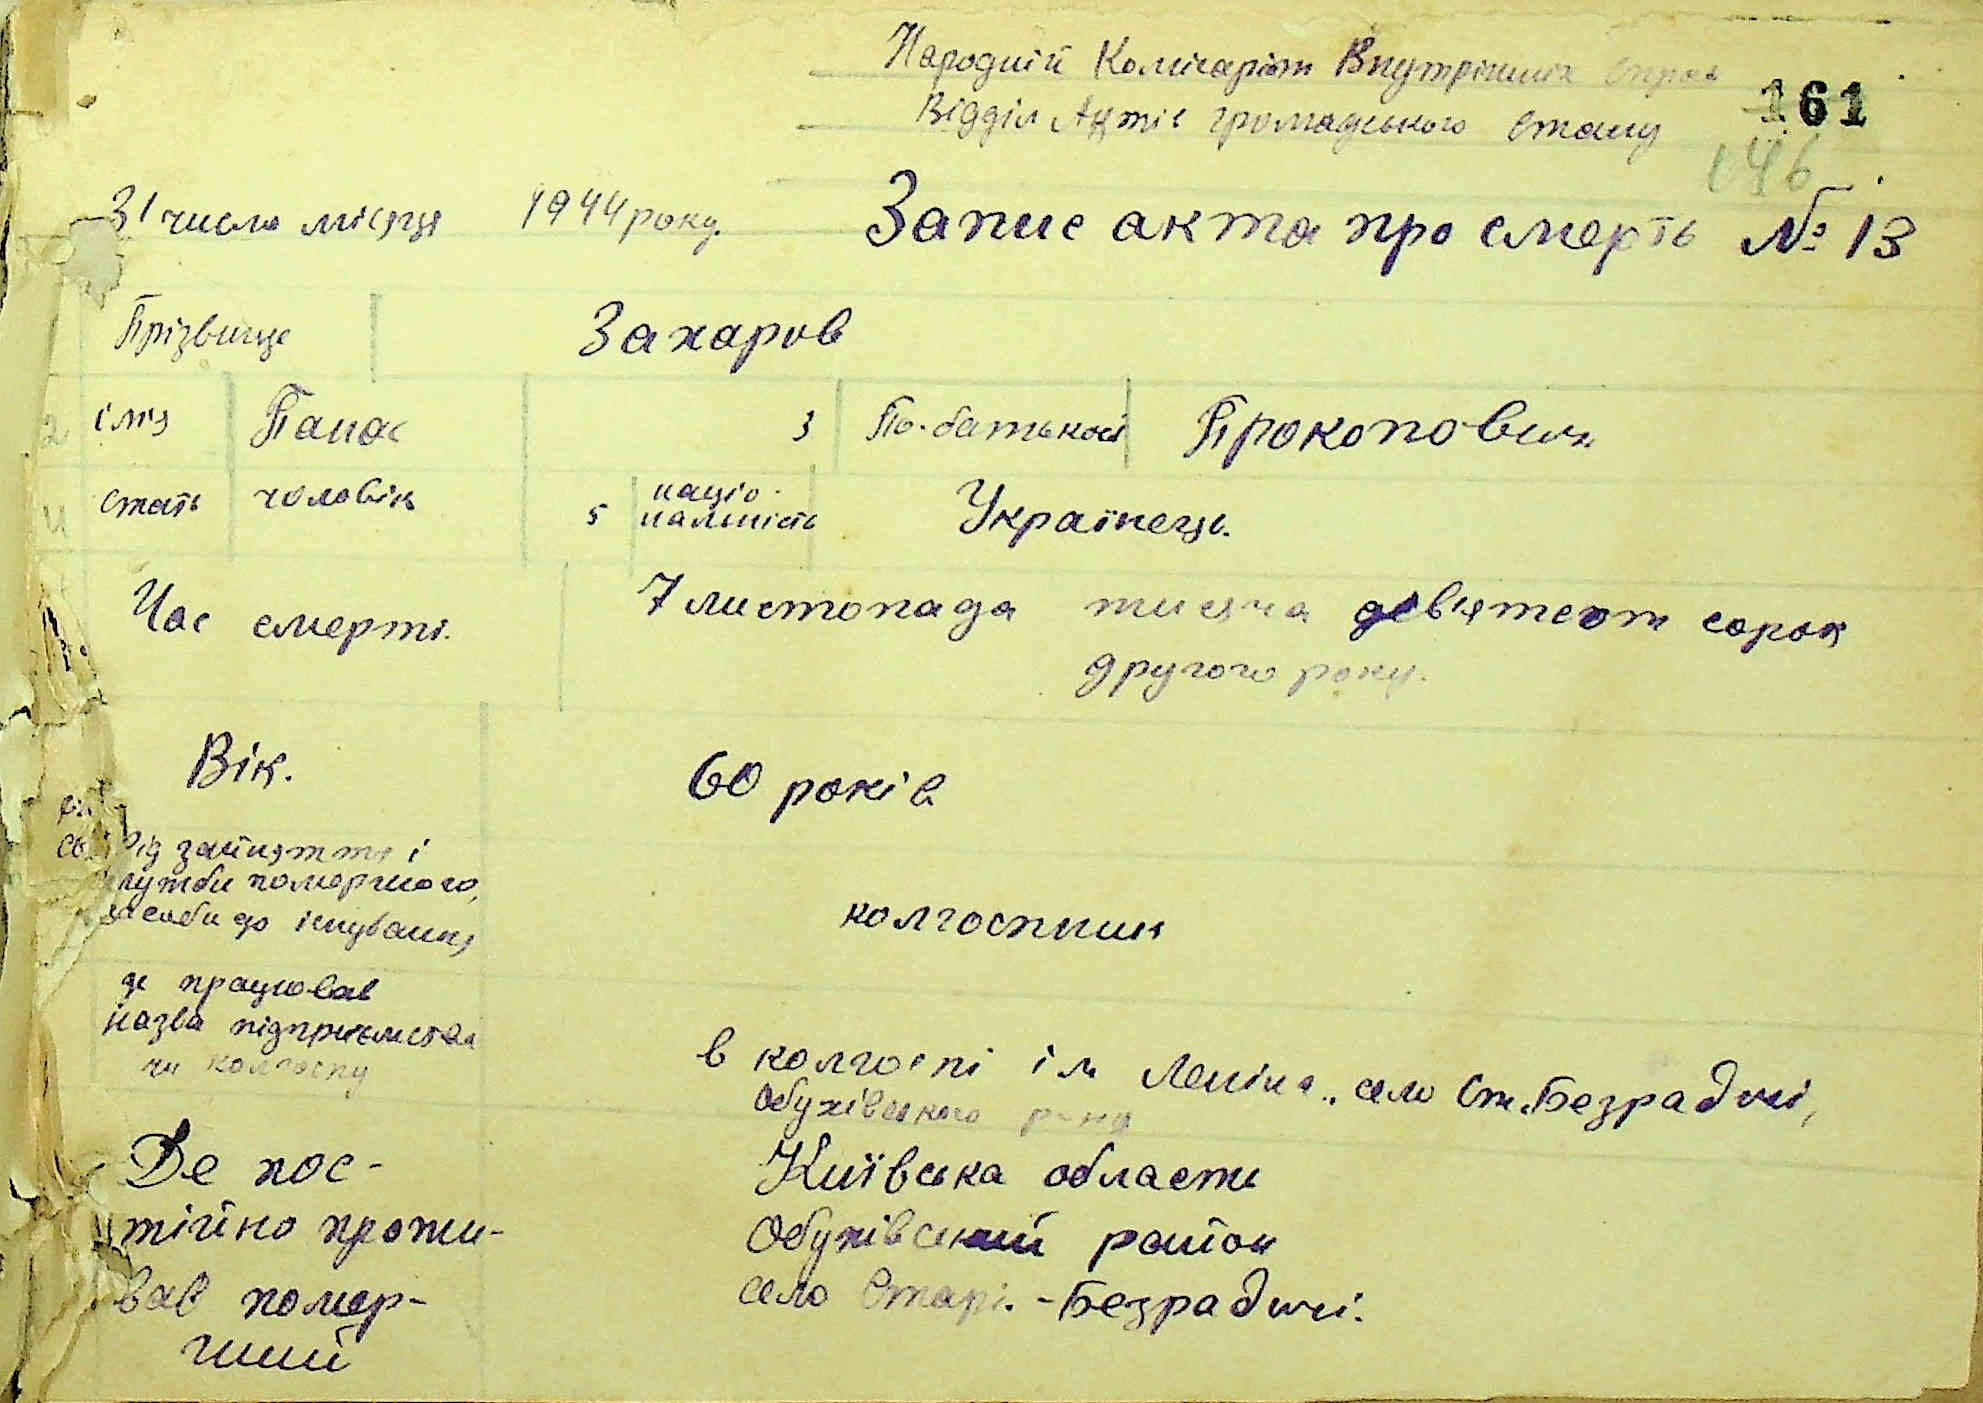 Народній Комісаріат Внутрішніх Справ
Відділ Актів громадського стану
161
146
31 число місяця 1944 року. Запис акта про смерть № 13
Прізвище Захаров
2 ім'я Панас 3 По-батькові Прокопович
4 стать чоловік 5 націо-
нальність Українець.
Час смерті. 7 листопада тисяча девятсот сорок
другого року.
Вік. 60 років
Рід зайняття і
служби помершого,
засоби до існування
колгоспник
де працював
назва підприємства
чи колгоспу
в колгоспі ім Леніна., село Ст. Безрадичі,
Обухівського р-ну
Де пос-
тійно прожи-
вав помер-
ший
Київська область
Обухівський район
село Старі.-Безрадичі.